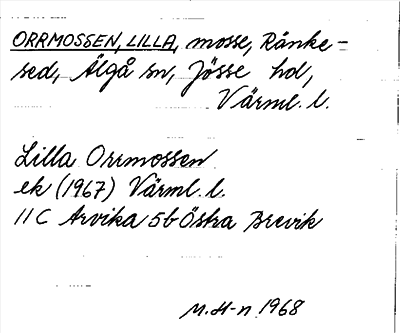 ORRMOSSEN, LILLA, mosse, Ränke-
sed, Älgå sn, Jösse hd,
Värml. l.
Lilla Orrmossen
ek (1967) Värml. l.
11C Arvika 5b Östra Brevik
M. H-n 1968